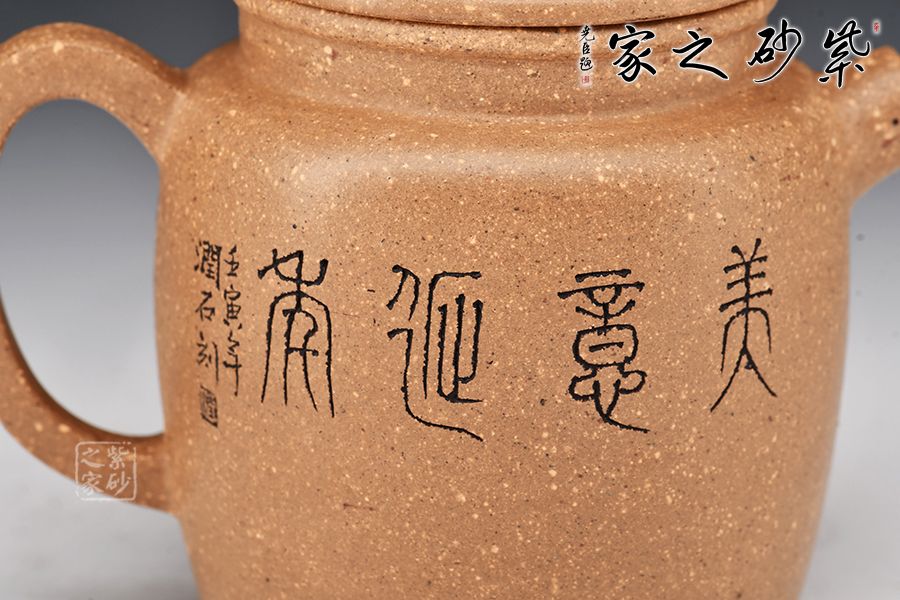 紫砂之家
尧臣题
美意延年
壬寅年
潤石刻
紫砂
之家